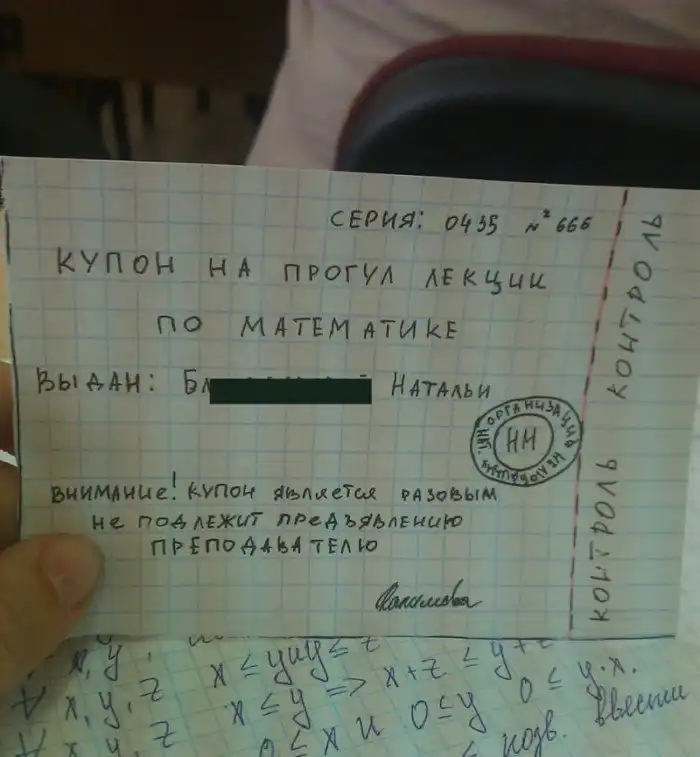 СЕРИЯ: 0435 № 666
КУПОН НА ПРОГУЛ ЛЕКЦИИ
ПО МАТЕМАТИКЕ
ВЫДАН: БЛ НАТАЛЬИ
ОРГАНИЗАЦИЯ
НН
ВНИМАНИЕ! КУПОН ЯВЛЯЕТСЯ РАЗОВЫМ
НЕ ПОДЛЕЖИТ ПРЕДЪЯВЛЕНИЮ
ПРЕПОДАВАТЕЛЮ
КОНТРОЛЬ КОНТРОЛЬ
x, y,
x, y, z x ≤ y и y ≤ z
x, y, z x ≤ y => x+z ≤ y+z
0 ≤ x и 0 ≤ y 0 ≤ y·x.
ввести